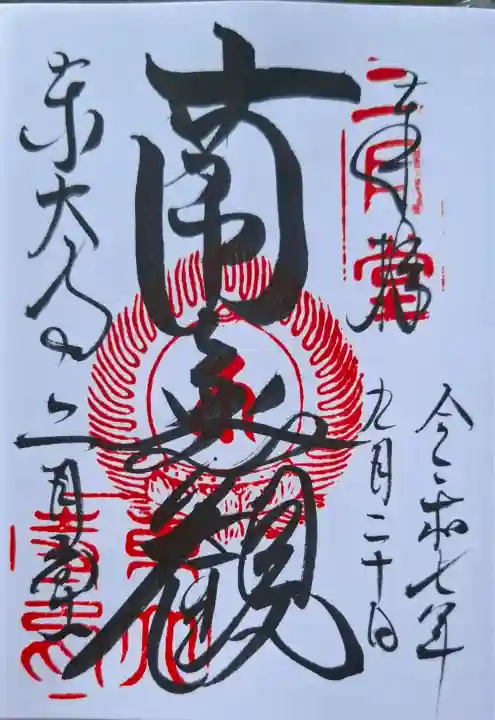 奉拝
二月堂
令和七年
九月二十日
南無観
東大寺
二月堂